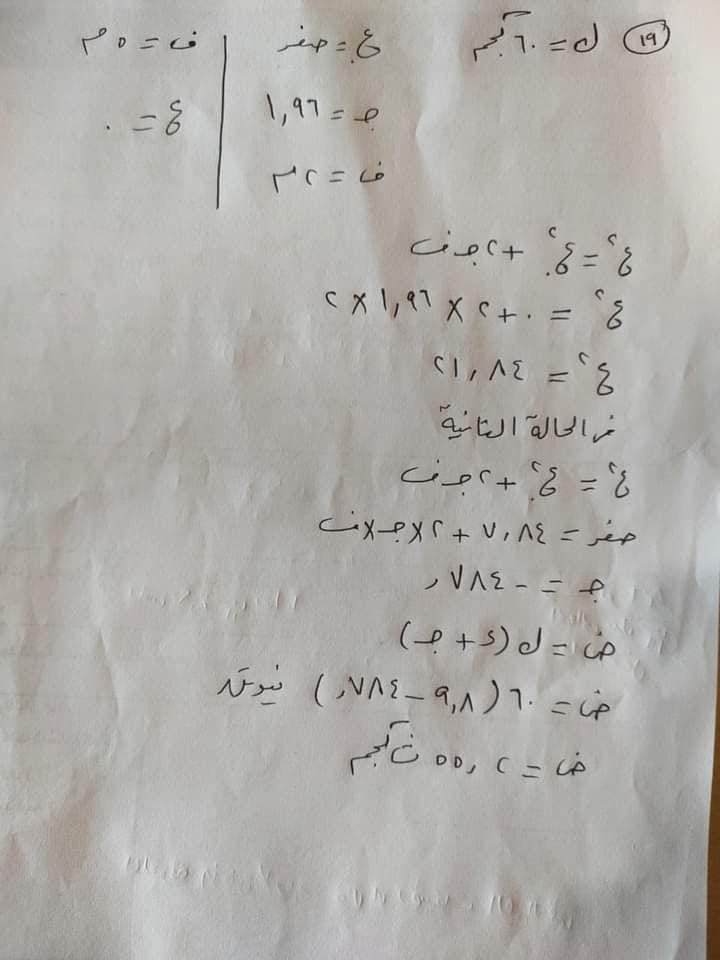 ١٩ ك = ٦٠ كجم ع. = صفر ف = ٥ م
جـ = ١,٩٦ ع = ٠
ف = ٢ م
ع٢ = ع.٢ + ٢ جـ ف
ع٢ = ٠ + ٢ × ١,٩٦ × ٢
ع٢ =
من الحالة الثانية
ع٢ = ع.٢ + ٢ جـ ف
صفر = ٧,٨٤ + ٢ × جـ × ف
جـ = - ٧٨٤,
ض = ك (د + جـ)
ض = ٦٠ (٩,٨ - ٧٨٤,) نيوتن
ض = ٥٥,٢ ث كجم